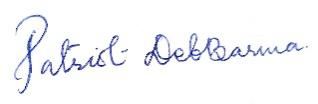 Patriot DebBarma